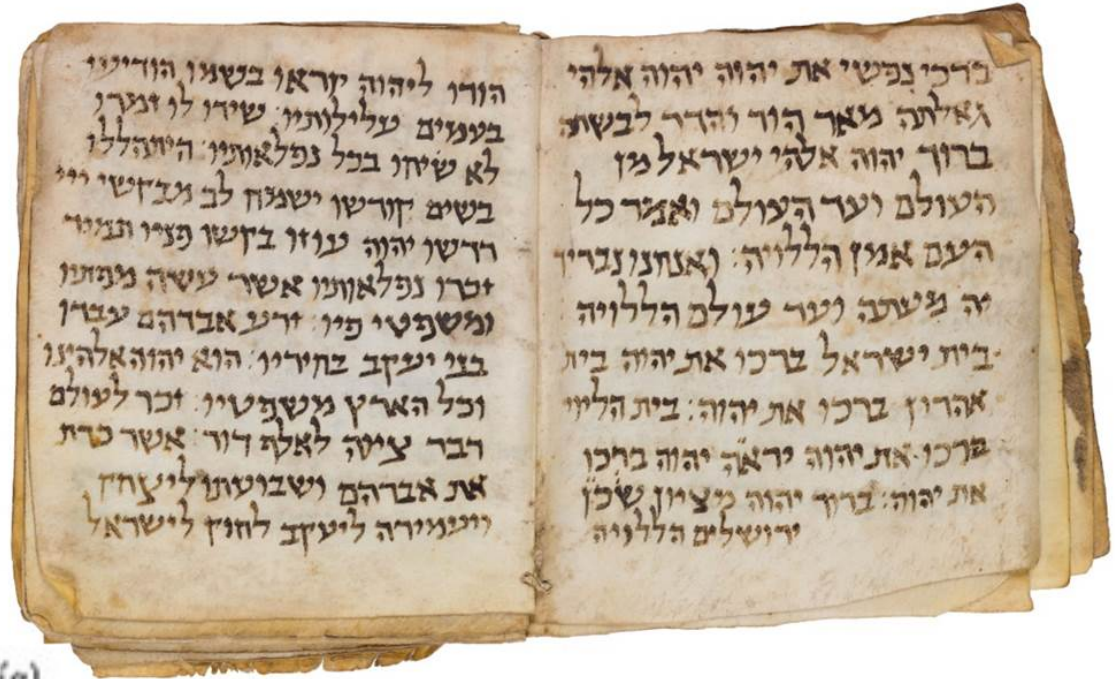 ברכי נפשי את יהוה יהוה אלהי
גאלתה מאד הוד והדר לבשתה
ברוך יהוה אלהי ישראל מן
העולם ועד העולם ואמר כל
העם אמן הללויה: ואנחנו נבריך
יה מעתה ועד עולם הללויה
בית ישראל ברכו את יהוה בית
אהרון ברכו את יהוה: בית הליוי
ברכו את יהוה יראה יהוה ברכו
את יהוה: ברוך יהוה מציון שכן
ירושלים הללויה
הודו ליהוה קראו בשמו הודיעו
בעמים עלילותיו: שירו לו זמרו
לא שיחו בכל נפלאותיו: היתהללו
בשים קודשו ישמח לב מבקשי ייי
דרשו יהוה עוזו בקשו פניו תמיד
זכרו נפלאותיו אשר עשה מפתיו
ומשפטי פיו: זרע אברהם עבדו
בני יעקב בחיריו: הוא יהוה אלהינו
וכל הארץ משפטיו: זכר לעולם
דבר ציוה לאלף דור: אשר כרת
את אברהם ושבועתו ליצחק
ויעמידה ליעקב לחוק לישראל
(a)